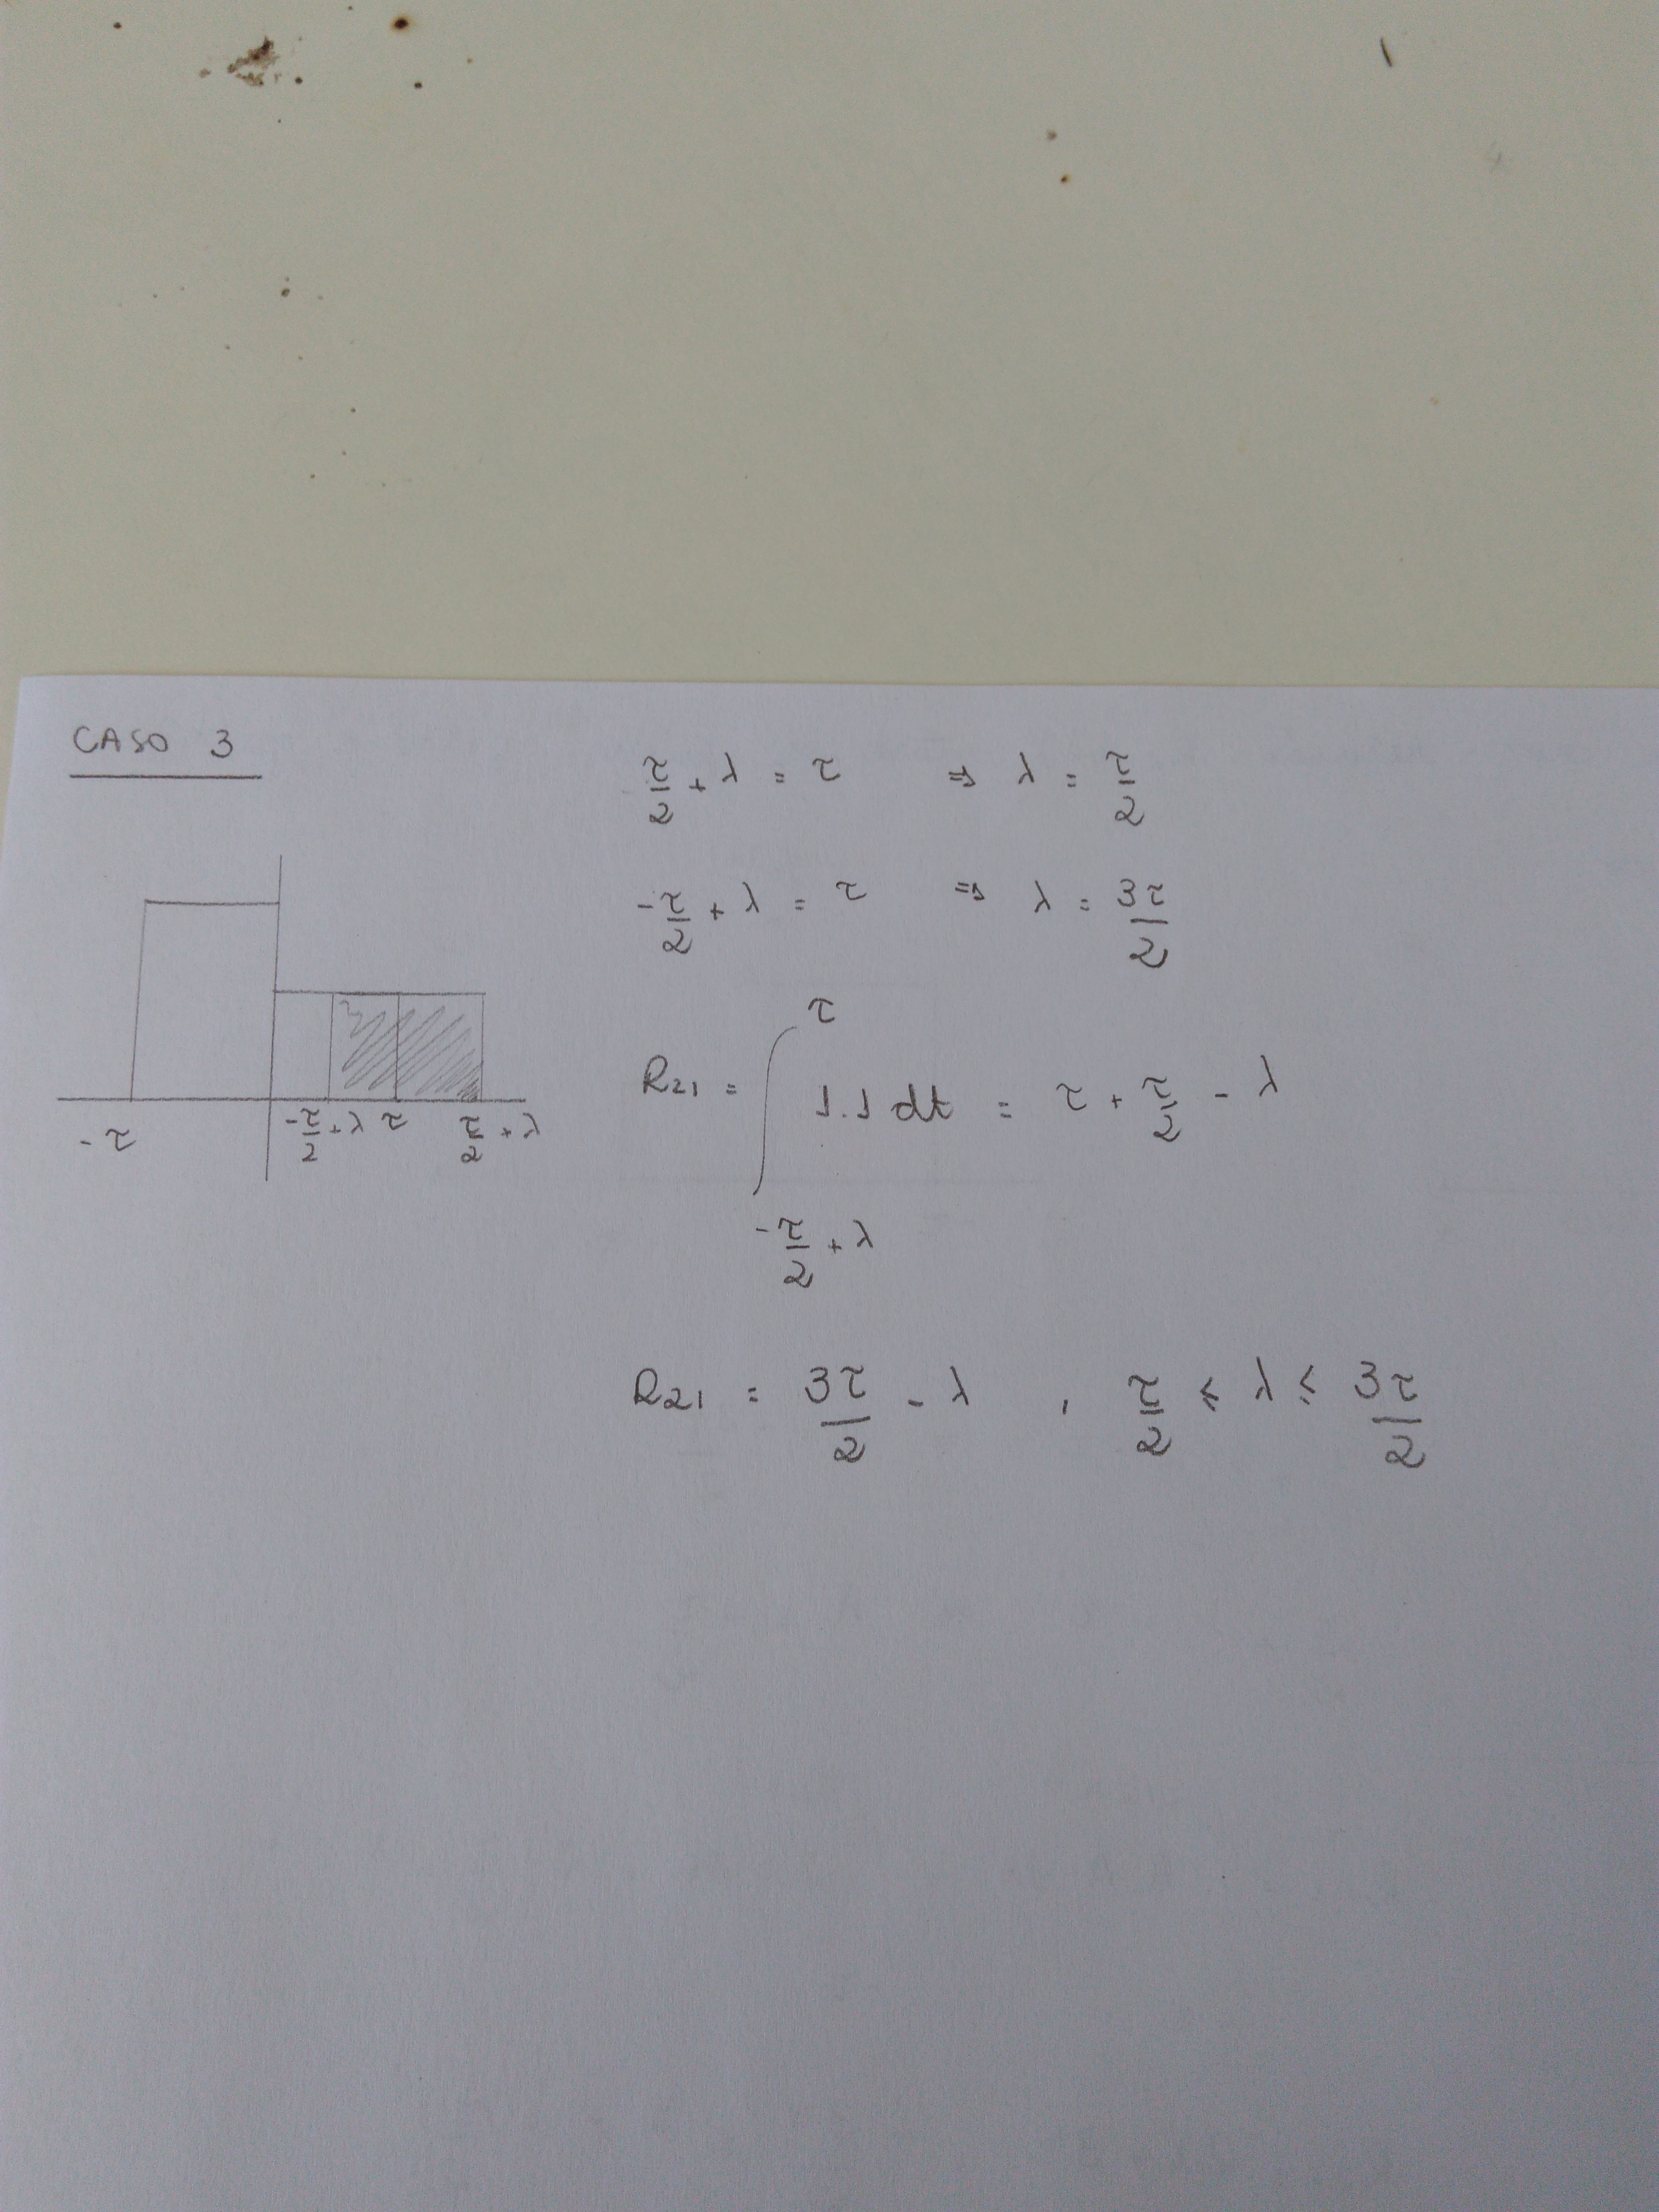 CASO 3
τ/2 + λ = τ ⇒ λ = τ/2
-τ/2 + λ = τ ⇒ λ = 3τ/2
-τ -τ/2 + λ τ τ/2 + λ
R21 = ∫ τ -τ/2 + λ 1.1 dt = τ + τ/2 - λ
R21 = 3τ/2 - λ , τ/2 ≤ λ ≤ 3τ/2